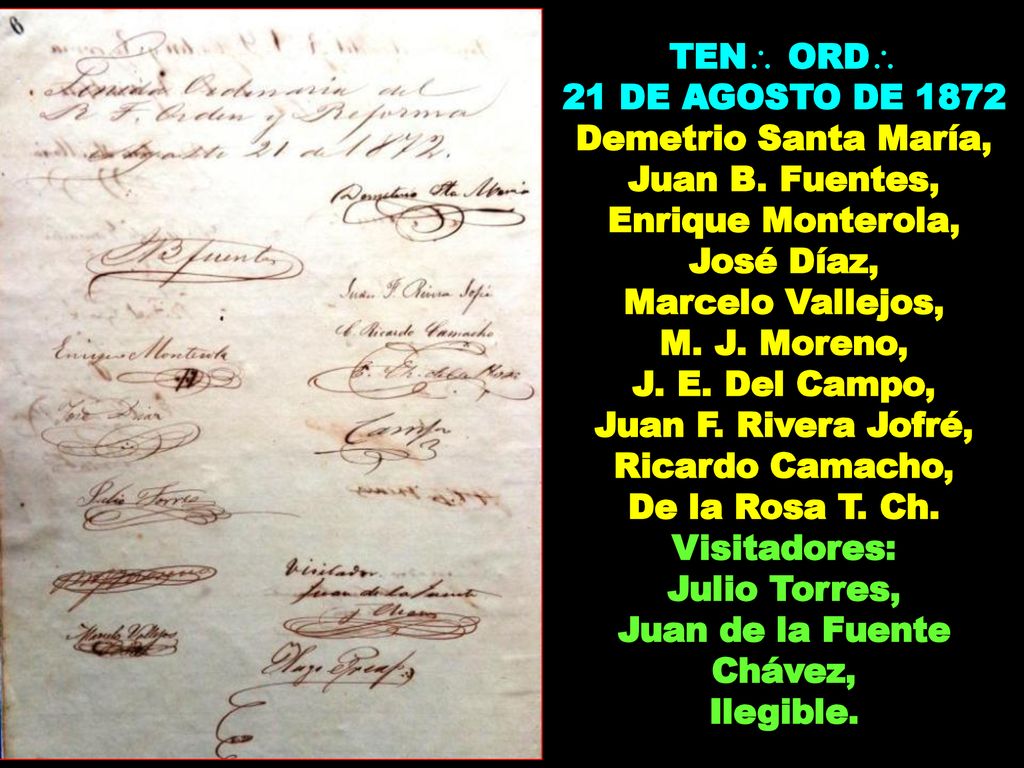 6
Tenida Ordinaria del
R F. Orden y Reforma
Agosto 21 de 1872.
Demetrio Sta Maria
J B Fuentes
Juan F. Rivera Jofré
C. Ricardo Camacho
Enrique Monterola
José Diaz
Campo
Julio Torres
Visitador
Juan de la Fuente
y Chavez
Marcelo Vallejos
TEN∴ ORD∴
21 DE AGOSTO DE 1872
Demetrio Santa María,
Juan B. Fuentes,
Enrique Monterola,
José Díaz,
Marcelo Vallejos,
M. J. Moreno,
J. E. Del Campo,
Juan F. Rivera Jofré,
Ricardo Camacho,
De la Rosa T. Ch.
Visitadores:
Julio Torres,
Juan de la Fuente
Chávez,
Ilegible.